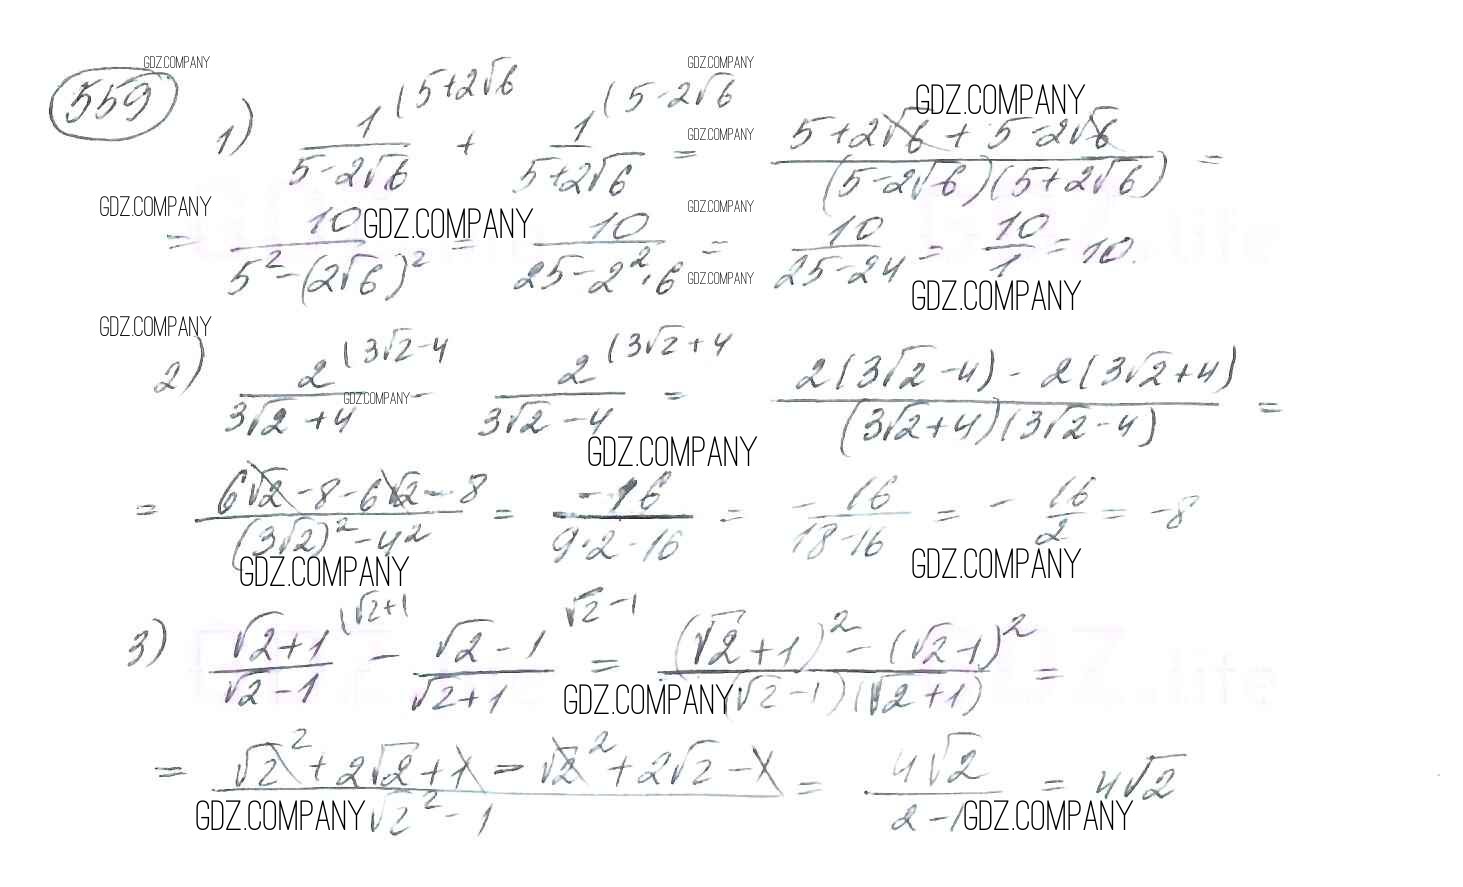 GDZ.COMPANY GDZ.COMPANY
559 1) 1 (5+2√6 / 5-2√6 + 1 (5-2√6 / 5+2√6 = 5+2√6 + 5-2√6 / (5-2√6)(5+2√6) =
GDZ.COMPANY GDZ.COMPANY
GDZ.COMPANY GDZ.COMPANY GDZ.COMPANY
= 10 / 5²-(2√6)² = 10 / 25-2²·6 = 10 / 25-24 = 10 / 1 = 10.
GDZ.COMPANY GDZ.COMPANY
GDZ.COMPANY
2) 2 (3√2-4 / 3√2+4 - 2 (3√2+4 / 3√2-4 = 2(3√2-4) - 2(3√2+4) / (3√2+4)(3√2-4) =
GDZ.COMPANY
GDZ.COMPANY
= 6√2-8-6√2-8 / (3√2)²-4² = -16 / 9·2-16 = -16 / 18-16 = - 16 / 2 = -8
GDZ.COMPANY GDZ.COMPANY
3) √2+1 (√2+1 / √2-1 - √2-1 √2-1 / √2+1 = (√2+1)²-(√2-1)² / (√2-1)(√2+1) =
GDZ.COMPANY
= √2²+2√2+1-√2²+2√2-1 / √2²-1 = 4√2 / 2-1 = 4√2
GDZ.COMPANY GDZ.COMPANY